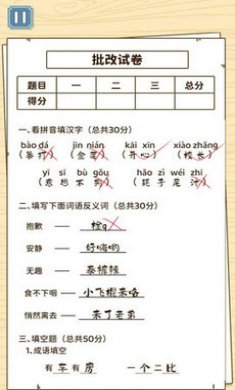 批改试卷
题目 一 二 三 总分
得分
一、看拼音填汉字（总共30分）
bào dá jīn nián kāi xīn xiào zhǎng
（暴打）（金莲）（开心）（校长）
yī sī bù gǒu hào zì wéi zhī
（意思不狗）（耗子尾汁）
二、填写下面词语反义词（总共50分）
抱歉 — 栓q
安静 — 好嗨哟
无趣 — 泰裤辣
食不下咽 — 小飞棍来咯
悄然离去 — 来了老弟
三、填空题（总共50分）
1、成语填空
有车有房 一个二比